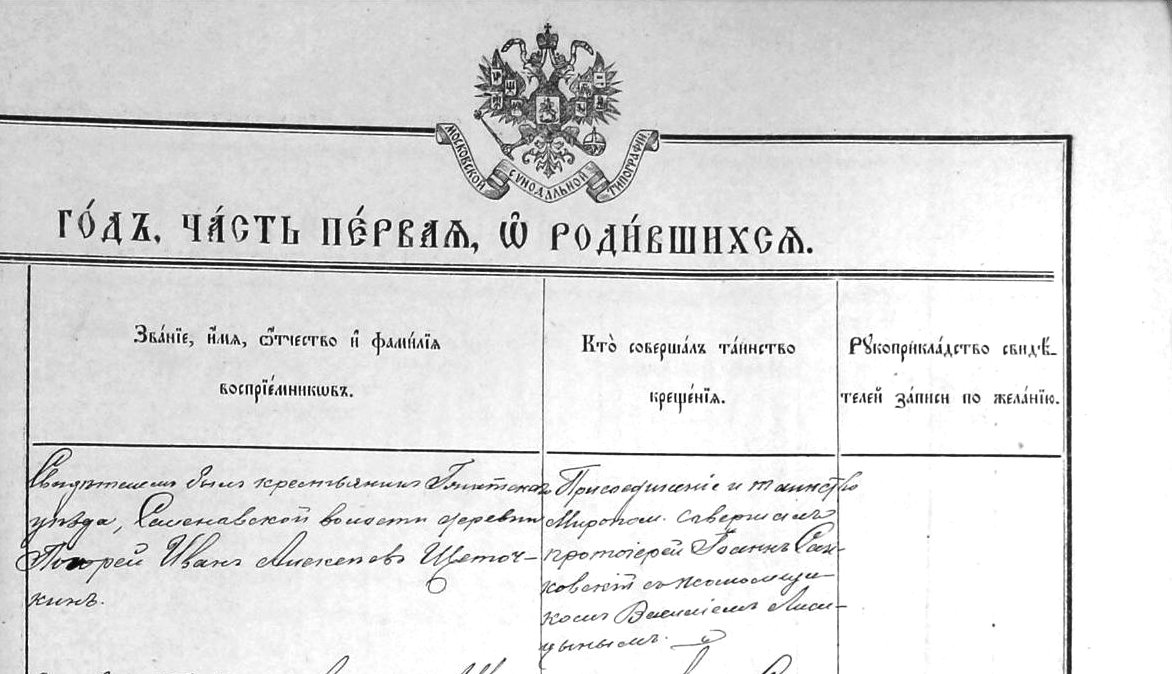 МОСКОВСКОЙ СѴНОДАЛЬНОЙ ТИПОГРАФІИ
ГО́ДЪ, ЧА́СТЬ ПЕ́РВАѦ, Ѡ҆ РОДИ́ВШИХСѦ.
Зва́нїе, и҆́мѧ, ѻ҆́тчество и҆ фами́лїѧ
воспрїе́мникѡвъ.
Кто̀ соверша́лъ та́инство
креще́нїѧ.
Рꙋкоприкла́дство свидѣ́-
телей за́писи по жела́нїю.
Свидѣтелемъ былъ крестьянинъ Гжатскаго
уѣзда, волости деревни
Иванъ Алексѣевъ Щеточ-
кинъ.
Присоединеніе и таинство
Миропом. совершилъ
протоіерей Іоаннъ
съ псаломщи-
комъ Василіемъ Лиси-
цынымъ.